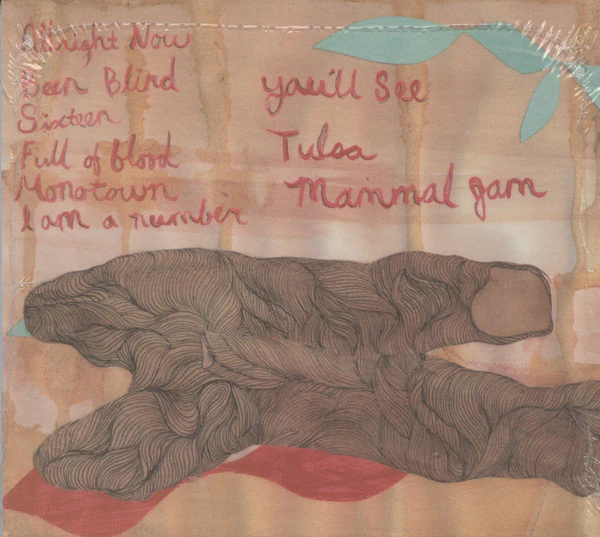 Allright Now
Been Blind
Sixteen
Full of Blood
Monotown
I am a number
You'll See
Tulsa
Mammal Jam